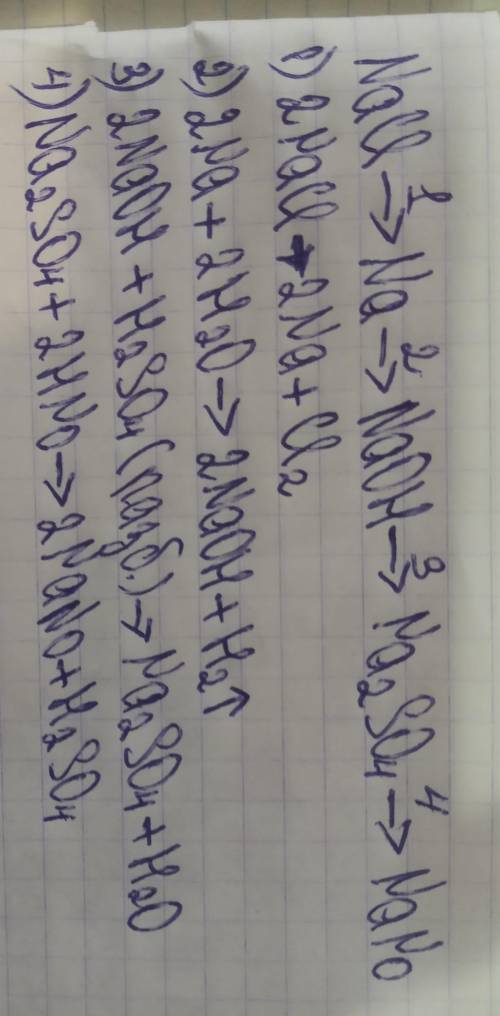 NaCl →¹ Na →² NaOH →³ Na₂SO₄ →⁴ NaNO
1) 2NaCl → 2Na + Cl₂
2) 2Na + 2H₂O → 2NaOH + H₂↑
3) 2NaOH + H₂SO₄ (разб.) → Na₂SO₄ + H₂O
4) Na₂SO₄ + 2HNO → 2NaNO + H₂SO₄